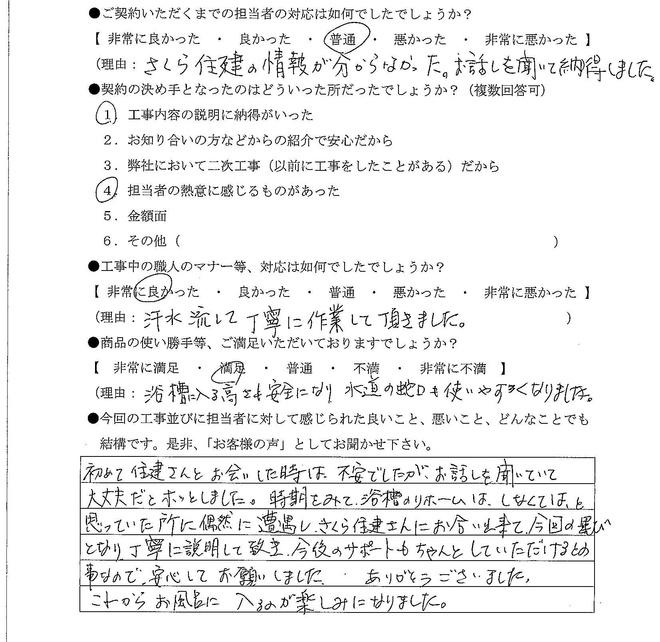 ●ご契約いただくまでの担当者の対応は如何でしたでしょうか?
【 非常に良かった ・ 良かった ・ 普通 ・ 悪かった ・ 非常に悪かった 】
(理由:さくら住建の情報が分からなかった。お話しを聞いて納得しました。
●契約の決め手となったのはどういった所だったでしょうか?(複数回答可)
1.工事内容の説明に納得がいった
2.お知り合いの方などからの紹介で安心だから
3.弊社において二次工事(以前に工事をしたことがある)だから
4.担当者の熱意に感じるものがあった
5.金額面
6.その他( )
●工事中の職人のマナー等、対応は如何でしたでしょうか?
【 非常に良かった ・ 良かった ・ 普通 ・ 悪かった ・ 非常に悪かった 】
(理由:汗水流して丁寧に作業して頂きました。 )
●商品の使い勝手等、ご満足いただいておりますでしょうか?
【 非常に満足 ・ 満足 ・ 普通 ・ 不満 ・ 非常に不満 】
(理由:浴槽に入る高さも安全になり 水道の蛇口も使いやすくなりました。
●今回の工事並びに担当者に対して感じられた良いこと、悪いこと、どんなことでも
結構です。是非、「お客様の声」としてお聞かせ下さい。
初めて住建さんとお会いした時は、不安でしたが、お話しを聞いていて
大丈夫だとホッとしました。時期をみて、浴槽のリホームは、しなくては、と
思っていた所に偶然に遭遇し、さくら住建さんにお会い出来て、今回の運び
となり丁寧に説明して 今後のサポートもちゃんとしていただけるとの
事なので、安心してお願いしました、 ありがとうございました。
これからお風呂に 入るのが楽しみになりました。